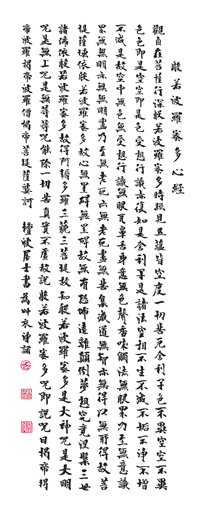 般若波羅蜜多心經
觀自在菩薩行深般若波羅蜜多時照見五蘊皆空度一切苦厄舍利子色不異空空不異
色色即是空空即是色受想行識亦復如是舍利子是諸法空相不生不滅不垢不淨不增
不減是故空中無色無受想行識無眼耳鼻舌身意無色聲香味觸法無眼界乃至無意識
界無無明亦無無明盡乃至無老死亦無老死盡無苦集滅道無智亦無得以無所得故菩
提薩埵依般若波羅蜜多故心無罣礙無罣礙故無有恐怖遠離顛倒夢想究竟涅槃三世
諸佛依般若波羅蜜多故得阿耨多羅三藐三菩提故知般若波羅蜜多是大神咒是大明
咒是無上咒是無等等咒能除一切苦真實不虛故說般若波羅蜜多咒即說咒曰揭帝揭
帝波羅揭帝波羅僧揭帝菩提薩婆訶